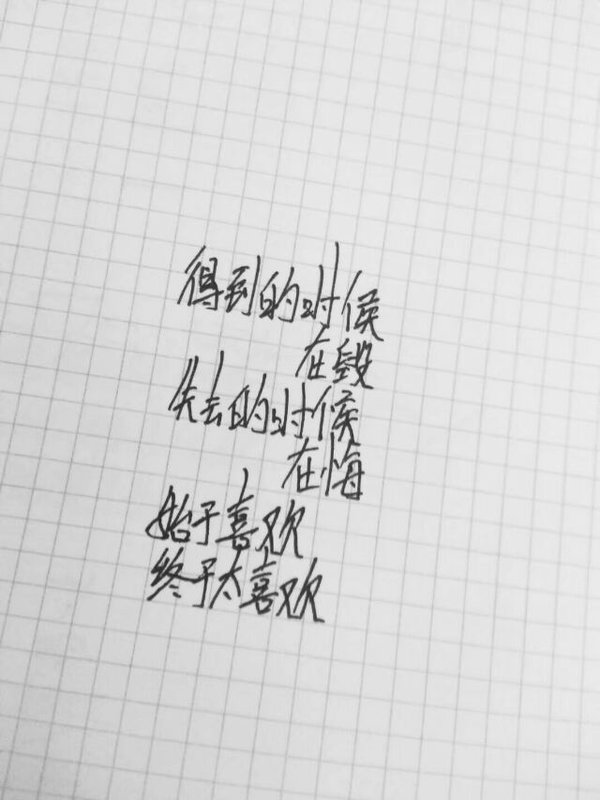 得到的时候
在毁
失去的时候
在悔
始于喜欢
终于太喜欢